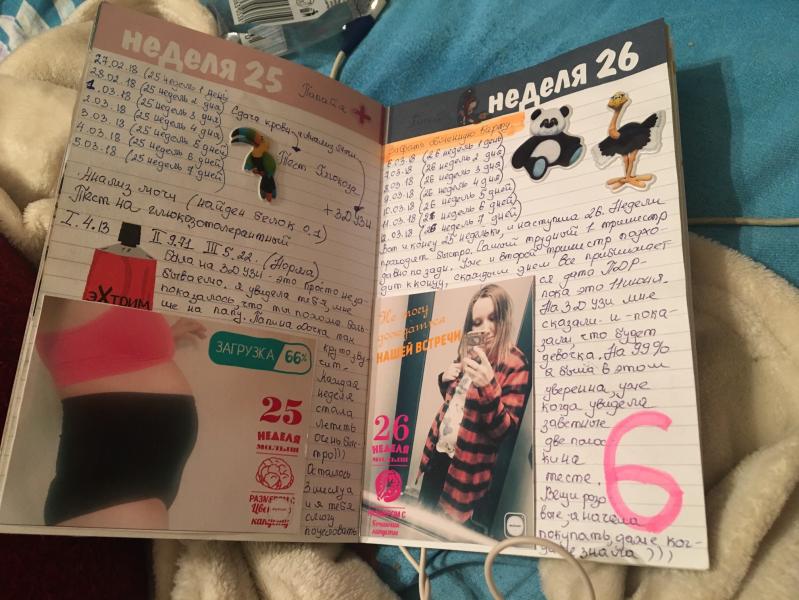 неделя 25
Папайя +
27.02.18 (25 недель 1 день
28.02.18 (25 недель 2 дня
1.03.18 (25 недель 3 дня
2.03.18 (25 недель 4 дня
3.03.18 (25 недель 5 дней
4.03.18 (25 недель 6 дней)
5.03.18 (25 недель 7 дней)
Сдача крови, анализ мочи
Тест Глюкоза
+ 3D УЗИ
Анализ мочи (найден белок 0,1)
Тест на глюкозотолерантный
I. 4.13
II 9.71 III 5.22. (Норма)
эХтрим
Была на 3D УЗИ - это просто неза-
бываемо. Я увидела тебя, мне
показалось, что ты похожа боль-
ше на папу. Папина дочка так
круто зву
чит.
Каждая
неделя
стала
лететь
очень быс-
тро)))
Осталось
3 месяца
и я тебя
смогу
поцеловать
ЗАГРУЗКА 66%
25
НЕДЕЛЯ
малыш
РАЗМЕРОМ С
Цветную
капусту
неделя 26
Забрать обменную карту
6.03.18 (26 недель 1 день)
7.03.18 (26 недель 2 дня
8.03.18 (26 недель 3 дня
9.03.18 (26 недель 4 дня)
10.03.18 (26 недель 5 дней
11.03.18 (26 недель 6 дней)
12.03.18 (26 недель 7 дней)
Вот и концу 25 недельки, и наступила 26. Недели
проходят быстро. Самый трудный 1 триместр
давно позади. Уже и второй триместр подхо-
дит к концу, с каждым днем все приближает
ся дата ПДР
пока это 11 июня.
На 3D УЗИ мне
сказали и пока-
зали, что будет
девочка. На 99%
я была в этом
уверенна, уже
когда увидела
заветные
две полос-
ки на
тесте.
Вещи розо
вые, я начала
покупать, даже ког-
да не знала )))
Не могу
дождаться
НАШЕЙ ВСТРЕЧИ
26
НЕДЕЛЯ
малыш
РАЗМЕРОМ С
капусты
6